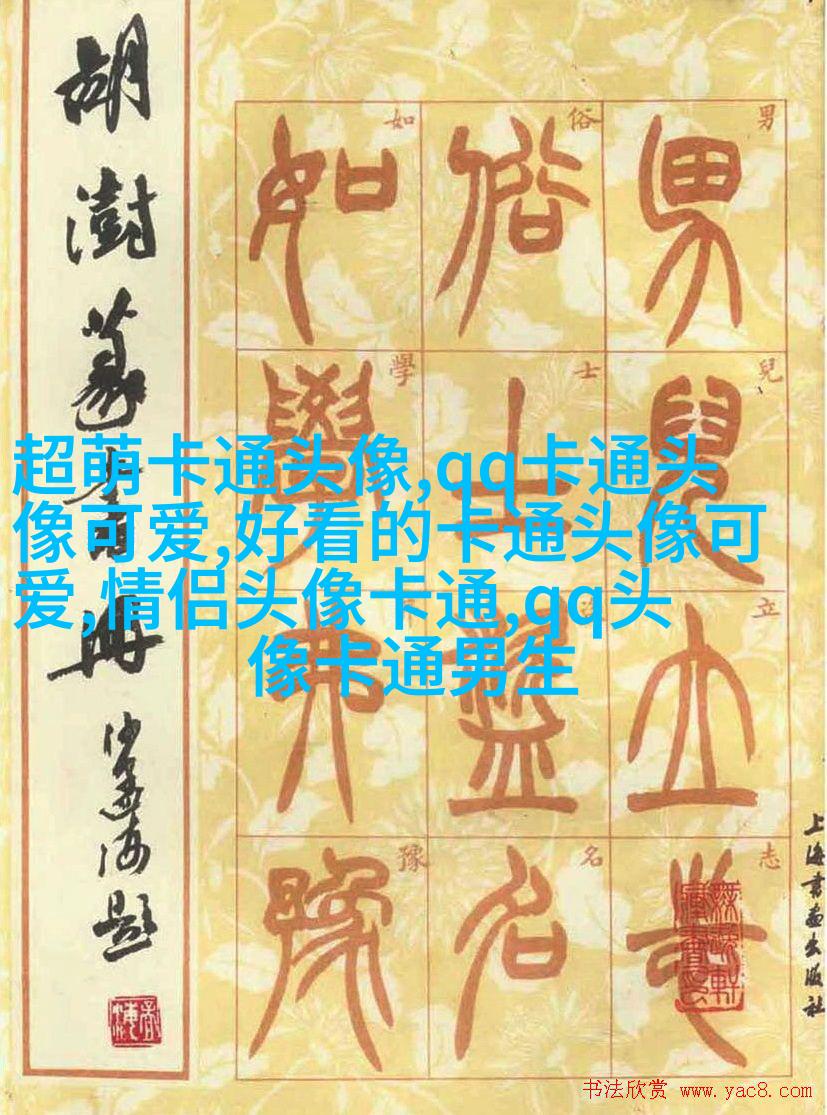 胡澍篆書冊
沙孟海題
男
俗
如
男俗如
兒
士
學
兒士學
立
立
志
名
豫
名豫
上海書畫出版社
超萌卡通头像,qq卡通头
像可爱,好看的卡通头像可
爱,情侣头像卡通,qq头
像卡通男生
书法欣赏 www.yac8.com